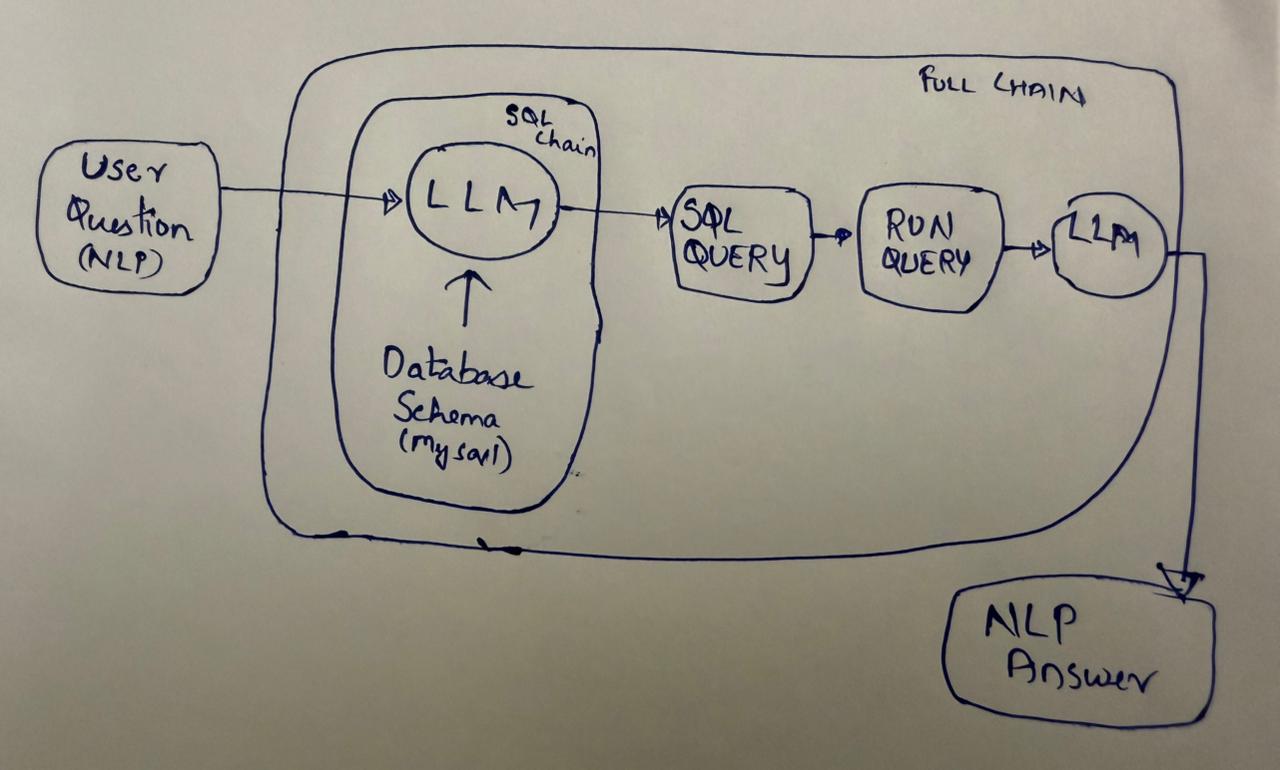 FULL CHAIN
SQL
Chain
User
Question
(NLP)
LLM
Database
Schema
(Mysql)
SQL
QUERY
RUN
QUERY
LLM
NLP
Answer